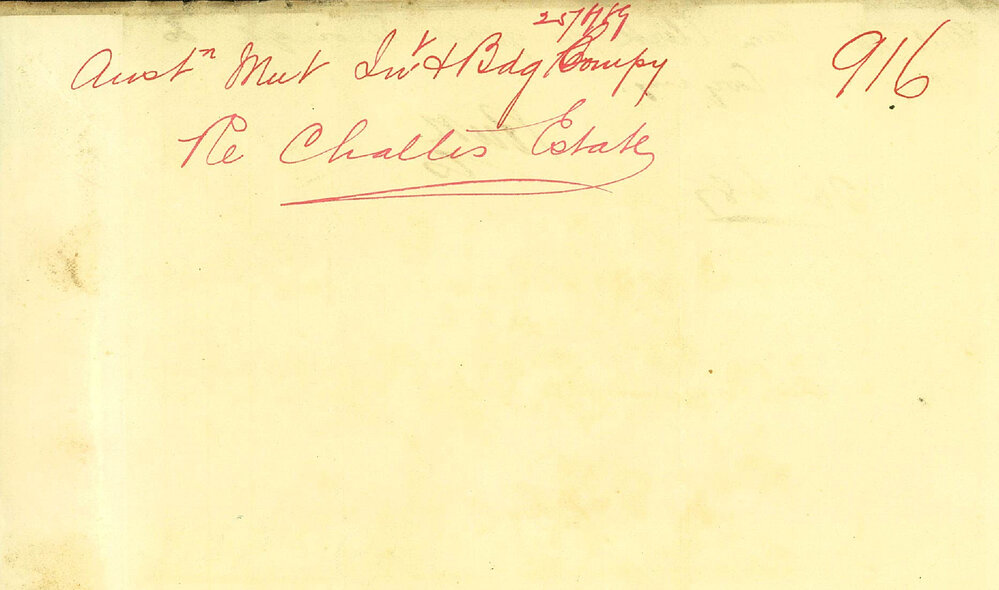 25/7/89
Austn Mut Invt & Bdg Compy
916
Re Challis Estate